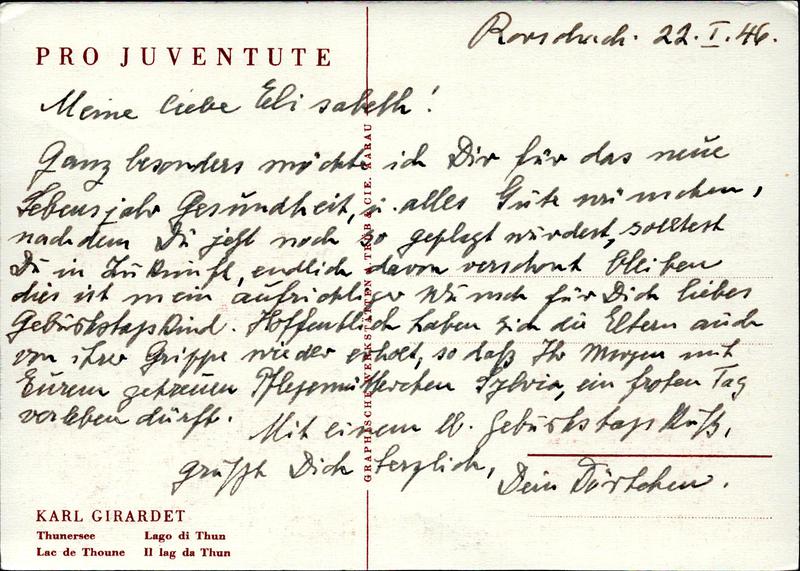 PRO JUVENTUTE
Rorschach. 22. I. 46.
Meine liebe Elisabeth!
Ganz besonders möchte ich Dir für das neue
Lebensjahr Gesundheit, u. alles Gute wünschen,
nachdem Du jetzt noch so geplagt würdest, solltest
Du in Zukunft, endlich davon verschont bleiben
dies ist mein aufrichtiger Wunsch für Dich liebes
Geburtstagskind. Hoffentlich haben sich die Eltern auch
von ihrer Grippe wieder erholt, so daß Ihr Morgen mit
Eurem getreuen Pflegemütterchen Sylvia, ein frohen Tag
verleben dürft.
Mit einem lb. Geburtstags Kuß,
grüßt Dich herzlich,
Dein Dörtchen.
GRAPHISCHE WERKSTÄTTEN A. TRÜB & CIE. AARAU
KARL GIRARDET
Thunersee Lago di Thun
Lac de Thoune Il lag da Thun